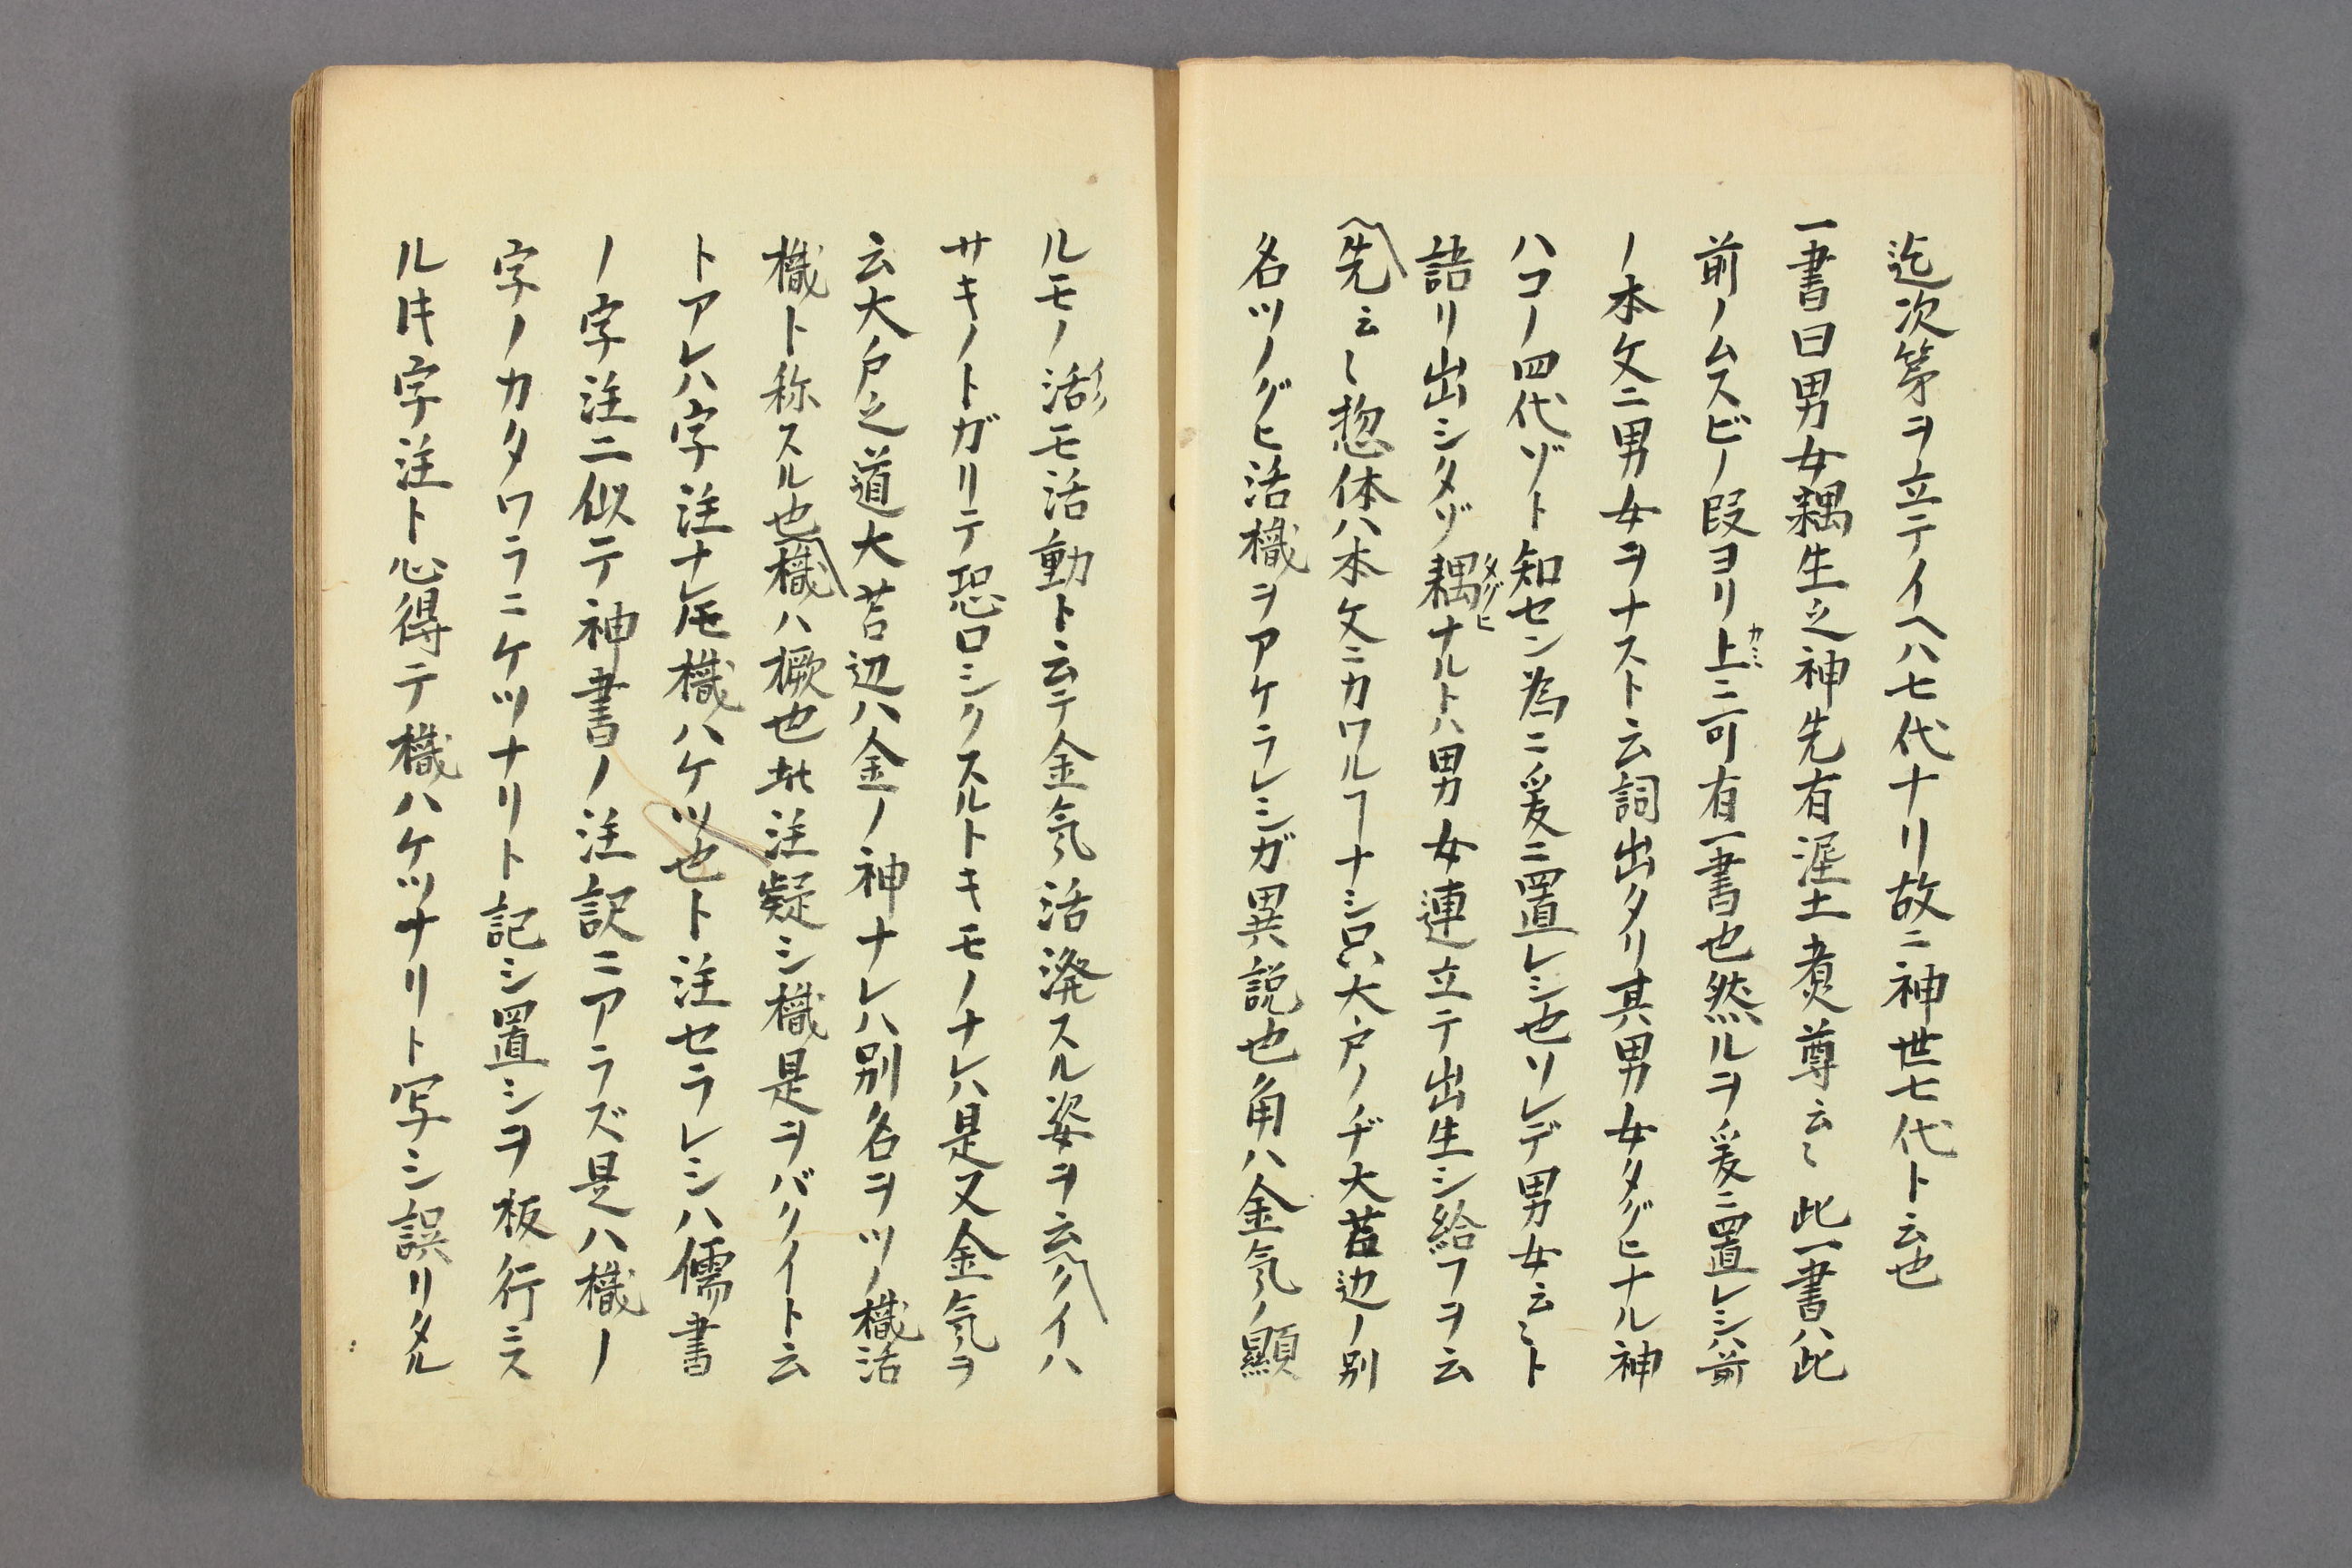 迄次第ヲ立テイヘハ七代ナリ故ニ神世七代ト云也
一書曰男女耦生之神先有泥土煑尊云〻此一書ハ此
前ノムスビノ段ヨリ上カミニ可有一書也然ルヲ爰ニ置レシハ前
ノ本文ニ男女ヲナスト云詞出タリ其男女タグヒナル神
ハコノ四代ゾト知セン為ニ爰ニ置レシ也ソレデ男女云〻ト
語リ出シタゾ耦タグヒナルトハ男女連立テ出生シ給フヲ云
先云〻惣体ハ本文ニカワルヿナシ只大戸ノヂ大苫辺ノ別
名ツノグヒ活樴ヲアケラレシガ異説也角ハ金気ノ顕
ルモノ活モ活動ト云テ金気活溌スル姿ヲ云クイハ
サキノトガリテ恐ロシクスルトキモノナレハ是又金気ヲ
云大戸之道大苫辺ハ金ノ神ナレハ別名ヲツノ樴活
樴ト称スル也樴ハ橛也此注疑シ樴是ヲバクイト云
トアレハ字注ナレ𪜈樴ハケツ也ト注セラレシハ儒書
ノ字注ニ似テ神書ノ注訳ニアラズ是ハ樴ノ
字ノカタワラニケツナリト記シ置シヲ板行ニス
ル𪜈字注ト心得テ樴ハケツナリト写シ誤リタル